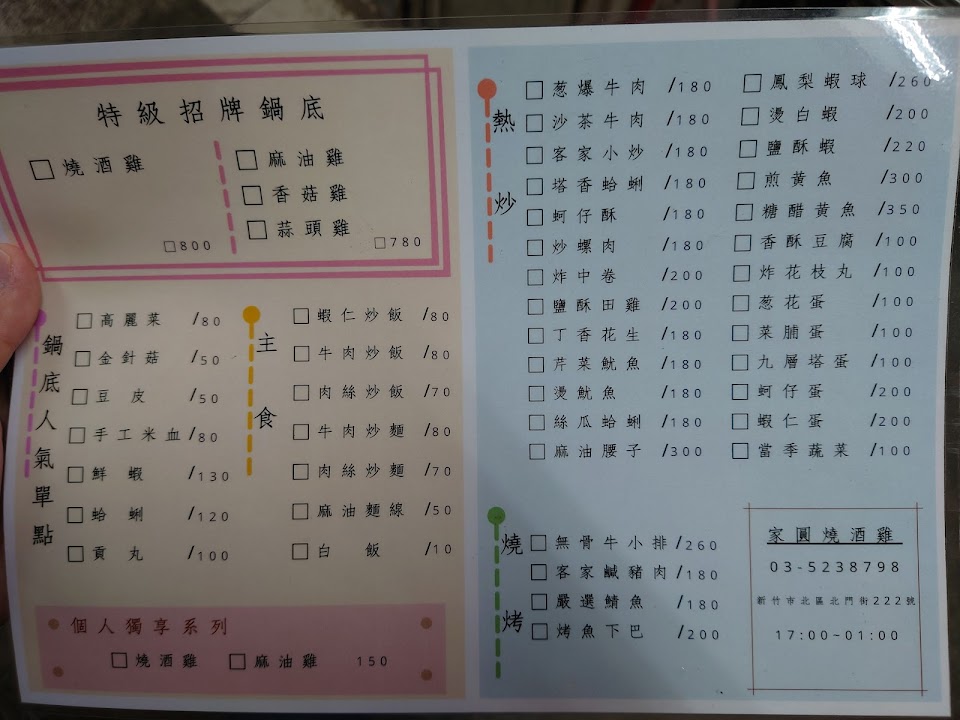 特級招牌鍋底
□燒酒雞
□800
□麻油雞
□香菇雞
□蒜頭雞
□780
鍋底人氣單點
□高麗菜 /80
□金針菇 /50
□豆皮 /50
□手工米血 /80
□鮮蝦 /130
□蛤蜊 /120
□貢丸 /100
主食
□蝦仁炒飯 /80
□牛肉炒飯 /80
□肉絲炒飯 /70
□牛肉炒麵 /80
□肉絲炒麵 /70
□麻油麵線 /50
□白飯 /10
個人獨享系列
□燒酒雞 □麻油雞 150
熱炒
□葱爆牛肉 /180
□沙茶牛肉 /180
□客家小炒 /180
□塔香蛤蜊 /180
□蚵仔酥 /180
□炒螺肉 /180
□炸中卷 /200
□鹽酥田雞 /200
□丁香花生 /180
□芹菜魷魚 /180
□燙魷魚 /180
□絲瓜蛤蜊 /180
□麻油腰子 /300
□鳳梨蝦球 /260
□燙白蝦 /200
□鹽酥蝦 /220
□煎黃魚 /300
□糖醋黃魚 /350
□香酥豆腐 /100
□炸花枝丸 /100
□葱花蛋 /100
□菜脯蛋 /100
□九層塔蛋 /100
□蚵仔蛋 /200
□蝦仁蛋 /200
□當季蔬菜 /100
燒烤
□無骨牛小排 /260
□客家鹹豬肉 /180
□嚴選鯖魚 /180
□烤魚下巴 /200
家圓燒酒雞
03-5238798
新竹市北區北門街222號
17:00~01:00